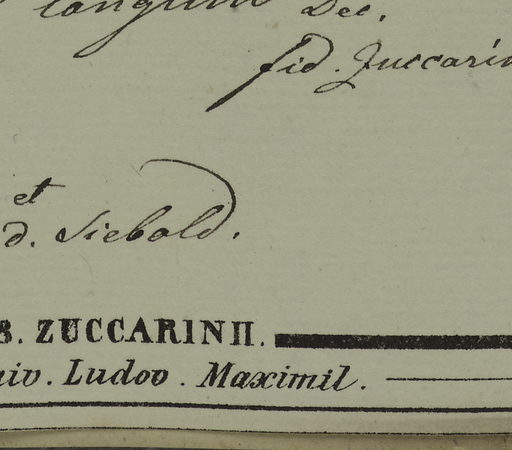 longum Dec.
fid. Zuccarin
et
d. Siebold.
B. ZUCCARINII.
niv. Ludov. Maximil.